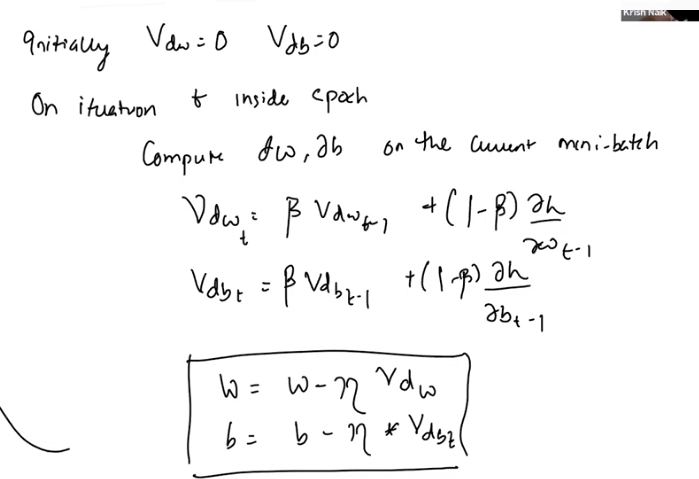 Krish Naik
Initially V_dw = 0 V_db = 0
On ituation t inside epoch
Compute ∂w, ∂b on the current mini-batch
V_dw_t = β V_dw_t-1 + (1 - β) ∂h/∂w_t-1
V_db_t = β V_db_t-1 + (1 - β) ∂h/∂b_t-1
w = w - η V_dw
b = b - η * V_db_t